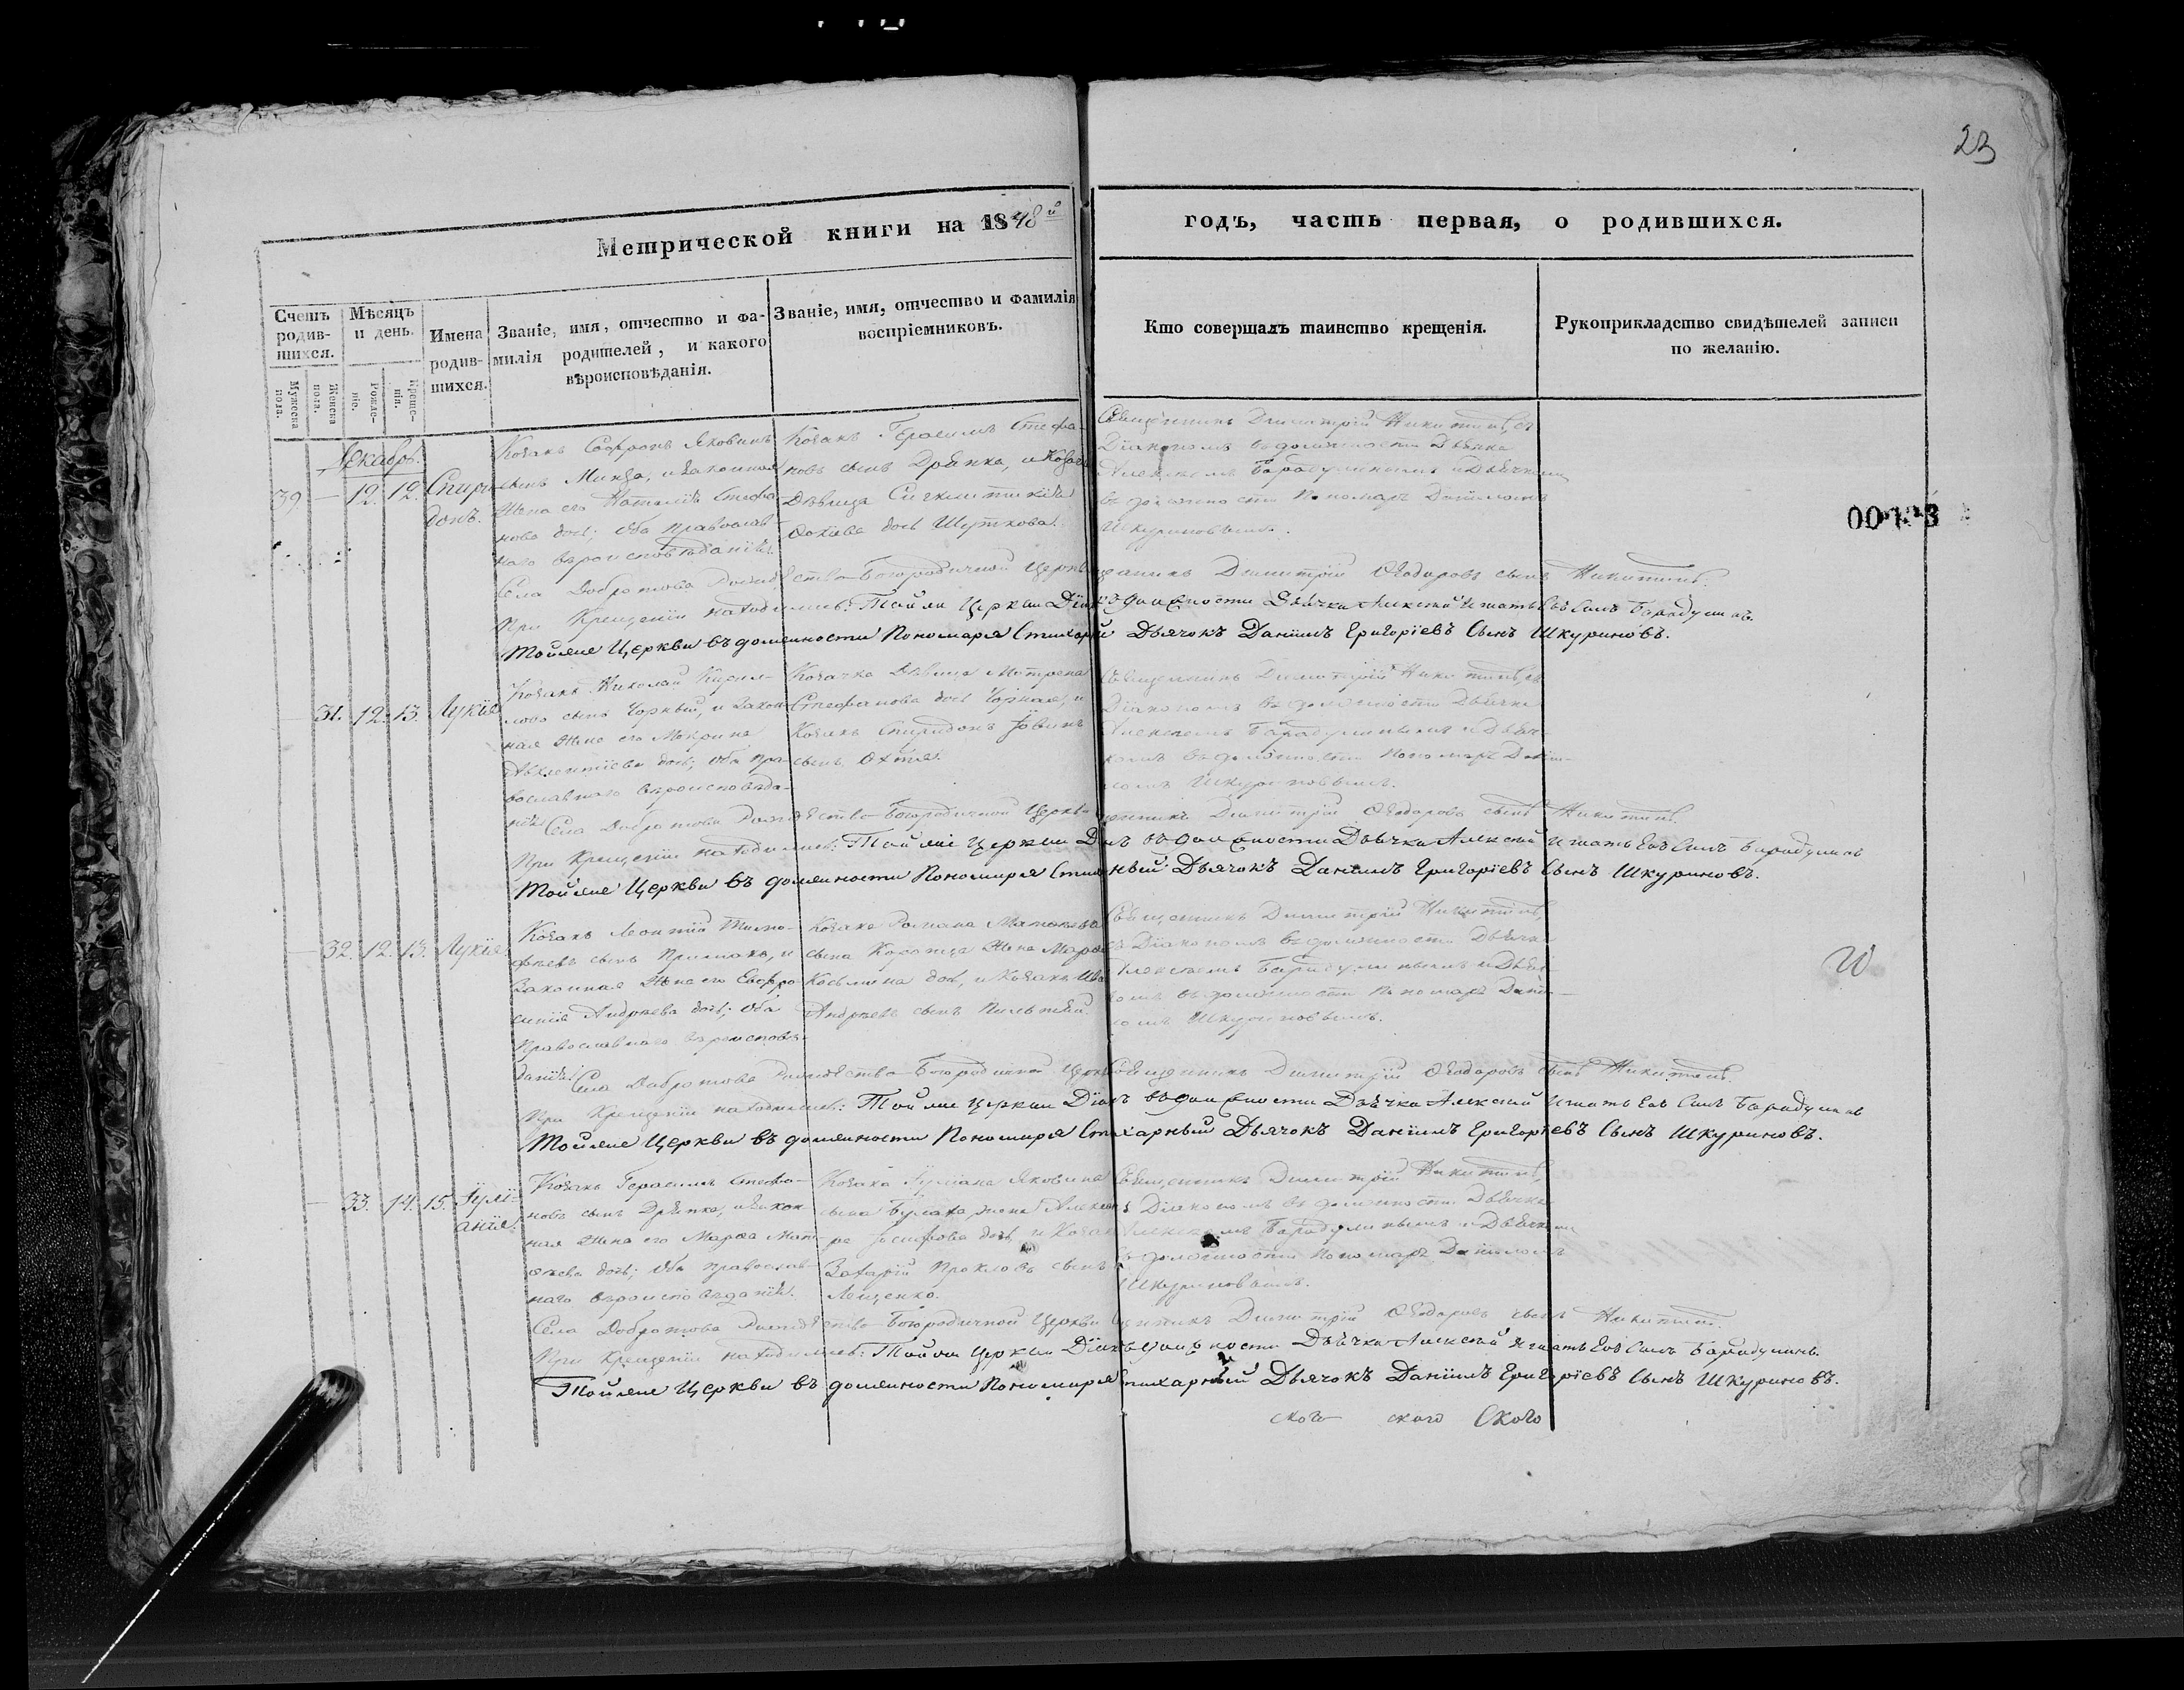 23
Метрической книги на 1848й годъ, часть первая, о родившихся.
Счетъ родив-шихся.
Мужеска пола.
Женска пола.
Мѣсяцъ и день.
Рожде-ніе.
Креще-нія.
Имена родив-шихся.
Званіе, имя, отчество и фа-
милія родителей, и какого
вѣроисповѣданія.
Званіе, имя, отчество и фамилія
воспріемниковъ.
Кто совершалъ таинство крещенія.
Рукоприкладство свидѣтелей записи
по желанію.
Декабрь.
39. — 12. 12. Спири-
донъ.
Козакъ Софронъ Яковинъ
сынъ Минда, и законная
жена его Наталія Стефа-
нова дочь; оба православ-
наго вѣроисповѣданія.
Козакъ Герасимъ Стефа-
новъ сынъ Дрѣпка, и Козач
Дѣвица
дочь Шуткова.
Священникъ Димитрій Никитинъ, съ
Діакономъ въ должности Дьячка
Алексѣемъ Барадулинымъ и Дьячкомъ
въ должности Пономаря Даніиломъ
Шкуриновымъ.
00133
Села Добротова Рождество-Богородичной Церкви Священникъ Димитрій Ѳеодоровъ сынъ Никитинъ.
При Крещеніи находились: Той же Церкви Діаконъ въ должности Дьячка Алексѣй Игнатьевъ Сынъ Барадулинъ.
Той же Церкви въ должности Пономаря Стихарный Дьячокъ Даніилъ Григоріевъ Сынъ Шкуриновъ.
— 31. 12. 13. Лукія
Козакъ Николай Кирил-
ловъ сынъ Чорный, и Закон-
ная Жена его Макрина
Авксентіева дочь; оба пра-
вославнаго вѣроисповѣда-
нія.
Козачка Дѣвица Мотрона
Стефанова дочь Чорная, и
Козакъ Спиридонъ Іовинъ
сынъ
Священникъ Димитрій Никитинъ, съ
Діакономъ въ должности Дьячка
Алексѣемъ Барадулинымъ и Дьяч-
комъ въ должности Пономаря Даніи-
ломъ Шкуриновымъ.
Села Добротова Рождество-Богородичной Церкви Священникъ Димитрій Ѳеодоровъ сынъ Никитинъ.
При Крещеніи находились: Той же Церкви Діаконъ въ должности Дьячка Алексѣй Игнатьевъ Сынъ Барадулинъ
Той же Церкви въ должности Пономаря Стихарный Дьячокъ Даніилъ Григоріевъ Сынъ Шкуриновъ.
— 32. 12. 13. Лукія.
Козакъ Леонтій Тимо-
фѣевъ сынъ Примакъ, и
Законная Жена его Евфро-
синія Андрѣева дочь; оба
Православнаго вѣроисповѣ-
данія.
Козака Романа Матвѣева
сына Жена Марѳа
Косьмина дочь, и Козакъ Ива
Андрѣевъ сынъ
Священникъ Димитрій Никитинъ,
съ Діакономъ въ должности Дьячка
Алексѣемъ Барадулинымъ и Дьяч-
комъ въ должности Пономаря Дані-
ломъ Шкуриновымъ.
Села Добротова Рождество-Богородичной Церкви Священникъ Димитрій Ѳеодоровъ сынъ Никитинъ.
При Крещеніи находились: Той же Церкви Діаконъ въ должности Дьячка Алексѣй Игнатьевъ Сынъ Барадулинъ
Той же Церкви въ должности Пономаря Стихарный Дьячокъ Даніилъ Григоріевъ Сынъ Шкуриновъ.
— 33. 14. 15. Іулі-
анія.
Козакъ Герасимъ Стефа-
новъ сынъ Дрѣпка, и закон-
ная Жена его Марѳа Мат-
ѳѣева дочь; оба православ-
наго вѣроисповѣданія.
Козака Іуліана Яковина
сына жена
Іосифова дочь и Козак
Захарій Прокловъ сынъ
Лещенко.
Священникъ Димитрій Никитинъ,
съ Діакономъ въ должности Дьячка
Алексѣемъ Барадулинымъ и Дьячкомъ
въ должности Пономаря Даніиломъ
Шкуриновымъ.
Села Добротова Рождество-Богородичной Церкви Священникъ Димитрій Ѳеодоровъ сынъ Никитинъ.
При Крещеніи находились: Той же Церкви Діаконъ въ должности Дьячка Алексѣй Игнатьевъ Сынъ Барадулинъ.
Той же Церкви въ должности Пономаря Стихарный Дьячокъ Даніилъ Григоріевъ Сынъ Шкуриновъ.
ского ского Ского